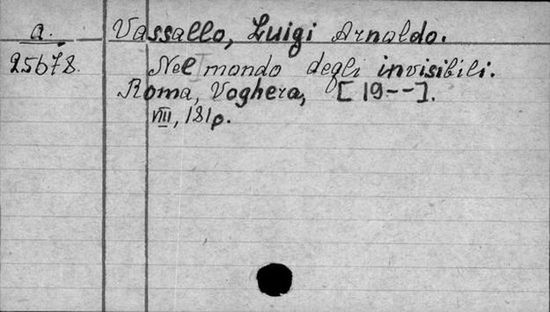 a. Vassallo, Luigi Arnaldo.
25678. Nel mondo degli invisibili.
Roma, Voghera, [19--].
VIII, 181p.